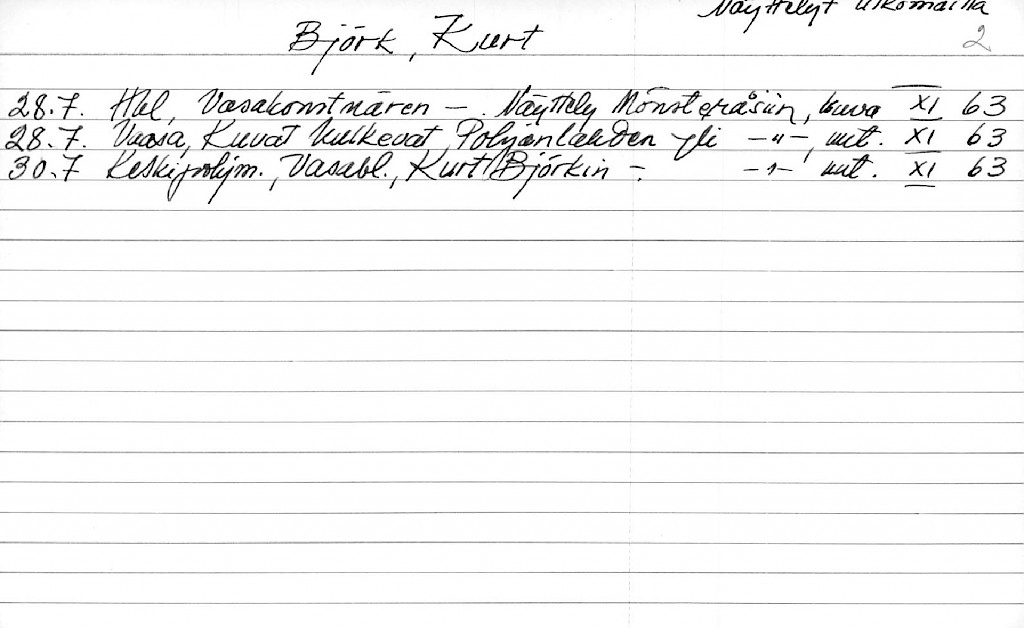 Näyttelyt ulkomailla
Björk, Kurt
2
28.7. Hbl, Vasakonstnären – Näyttely Mönsteråsiin, kuva XI 63
28.7. Vaasa, Kuvat kulkevat Pohjanlahden yli –"–, uut. XI 63
30.7 Keskipohjm., Vasabl., Kurt Björkin – –"– uut. XI 63